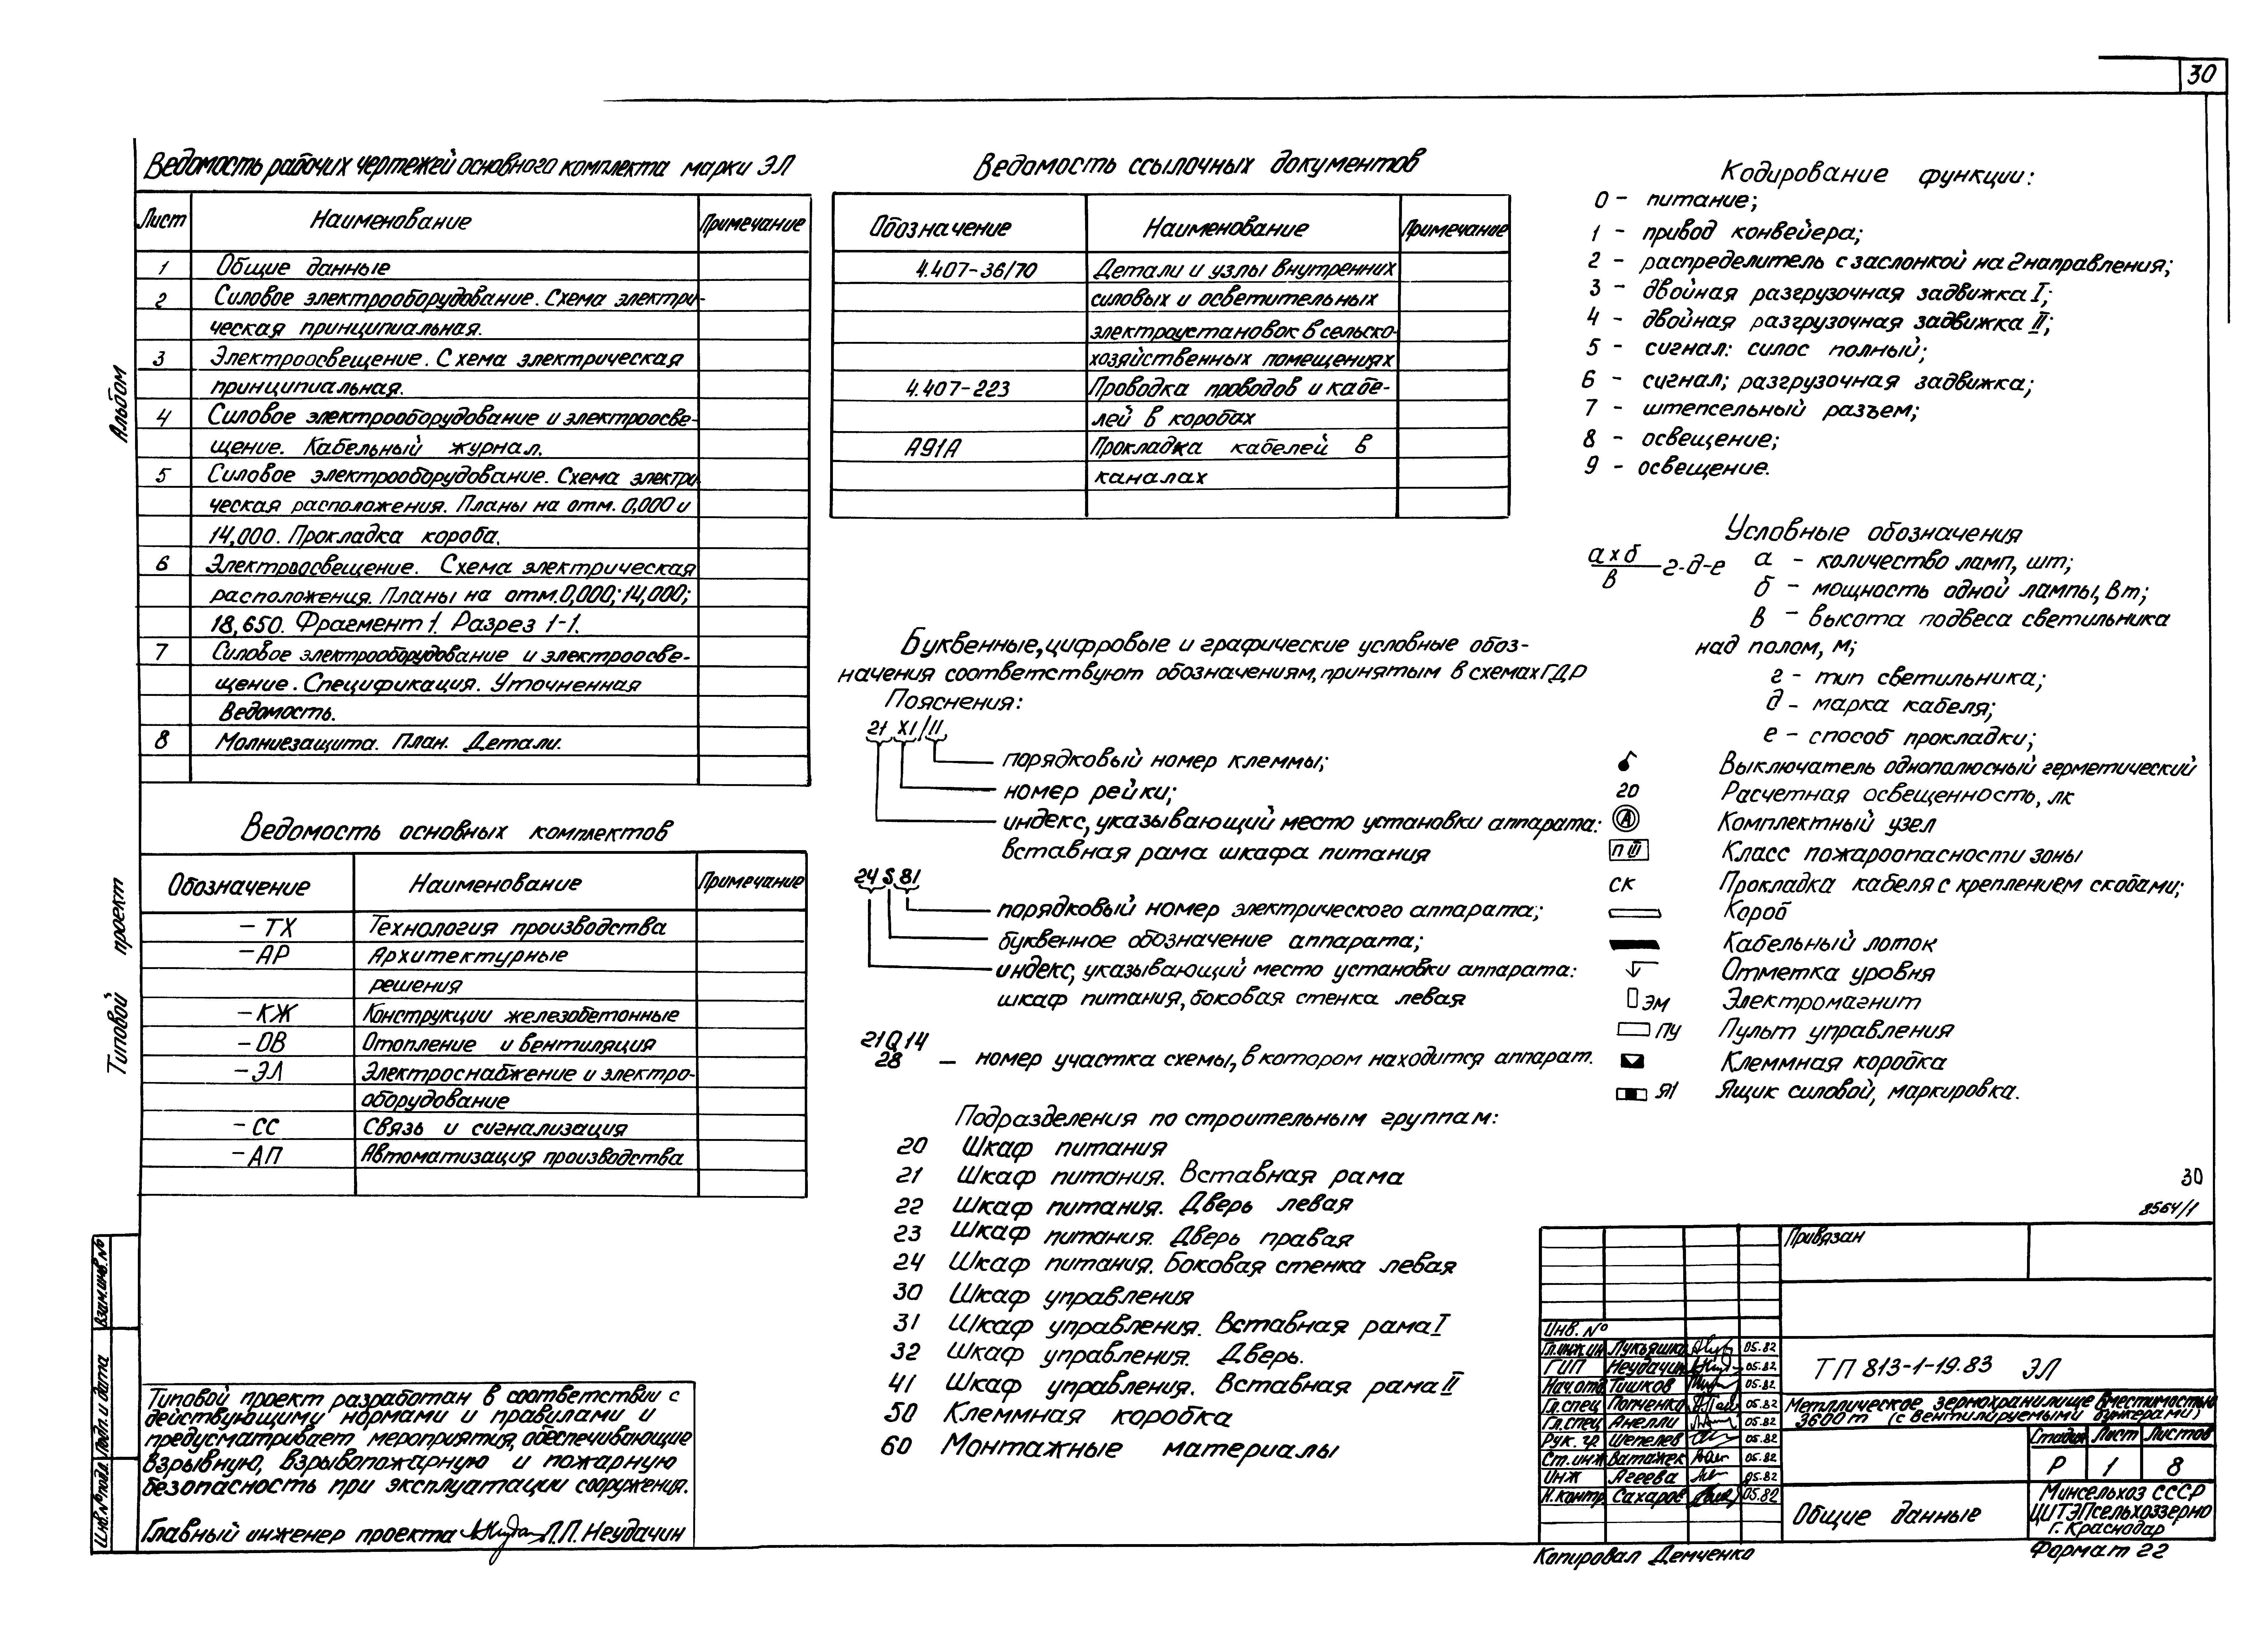 30
Ведомость рабочих чертежей основного комплекта марки ЭЛ
Лист Наименование Примечание
1 Общие данные
2 Силовое электрооборудование. Схема электри-
ческая принципиальная.
3 Электроосвещение. Схема электрическая
принципиальная.
4 Силовое электрооборудование и электроосве-
щение. Кабельный журнал.
5 Силовое электрооборудование. Схема электри-
ческая расположения. Планы на отм. 0,000 и
14,000. Прокладка короба.
6 Электроосвещение. Схема электрическая
расположения. Планы на отм. 0,000; 14,000;
18,650. Фрагмент 1. Разрез 1-1.
7 Силовое электрооборудование и электроосве-
щение. Спецификация. Уточненная
Ведомость.
8 Молниезащита. План. Детали.
Ведомость основных комплектов
Обозначение Наименование Примечание
-ТХ Технология производства
-АР Архитектурные
решения
-КЖ Конструкции железобетонные
-ОВ Отопление и вентиляция
-ЭЛ Электроснабжение и электро-
оборудование
-СС Связь и сигнализация
-АП Автоматизация производства
Типовой проект разработан в соответствии с
действующими нормами и правилами и
предусматривает мероприятия, обеспечивающие
взрывную, взрывопожарную и пожарную
безопасность при эксплуатации сооружения.
Главный инженер проекта Л.П. Неудачин
Альбом
Типовой проект
Взам.инв.№
Подп. и дата
Инв.№ подл.
Ведомость ссылочных документов
Обозначение Наименование Примечание
4.407-36/70 Детали и узлы внутренних
силовых и осветительных
электроустановок в сельско-
хозяйственных помещениях
4.407-223 Проводка проводов и кабе-
лей в коробах
А91А Прокладка кабелей в
каналах
Буквенные, цифровые и графические условные обоз-
начения соответствуют обозначениям, принятым в схемах ГДР
Пояснения:
21 X1/11
порядковый номер клеммы;
номер рейки;
индекс, указывающий место установки аппарата:
вставная рама шкафа питания
24 S 81
порядковый номер электрического аппарата;
буквенное обозначение аппарата;
индекс, указывающий место установки аппарата:
шкаф питания, боковая стенка левая
21Q14
28 - номер участка схемы, в котором находится аппарат.
Подразделения по строительным группам:
20 Шкаф питания
21 Шкаф питания. Вставная рама
22 Шкаф питания. Дверь левая
23 Шкаф питания. Дверь правая
24 Шкаф питания. Боковая стенка левая
30 Шкаф управления
31 Шкаф управления. Вставная рама I
32 Шкаф управления. Дверь.
41 Шкаф управления. Вставная рама II
50 Клеммная коробка
60 Монтажные материалы
Кодирование функции:
0 - питание;
1 - привод конвейера;
2 - распределитель с заслонкой на 2 направления;
3 - двойная разгрузочная задвижка I;
4 - двойная разгрузочная задвижка II;
5 - сигнал: силос полный;
6 - сигнал; разгрузочная задвижка;
7 - штепсельный разъем;
8 - освещение;
9 - освещение.
Условные обозначения
а х б
в
г-д-е
а - количество ламп, шт;
б - мощность одной лампы, Вт;
в - высота подвеса светильника
над полом, м;
г - тип светильника;
д - марка кабеля;
е - способ прокладки;
Выключатель однополюсный герметический
20 Расчетная освещенность, лк
А Комплектный узел
П III Класс пожароопасности зоны
СК Прокладка кабеля с креплением скобами;
Короб
Кабельный лоток
Отметка уровня
ЭМ Электромагнит
ПУ Пульт управления
Клеммная коробка
Я1 Ящик силовой, маркировка.
30
8564/1
Привязан
Инв. №
Гл.инж.ин Лукьяшко 05.82
ГИП Неудачин 05.82
Нач.отд. Тишков 05.82
Гл.спец Попченко 05.82
Гл.спец Анелли 05.82
Рук. гр Шепелев 05.82
Ст.инж Ватажек 05.82
Инж Агеева 05.82
Н.контр. Сахаров 05.82
ТП 813-1-19.83 ЭЛ
Металлическое зернохранилище вместимостью
3600 т (с вентилируемыми бункерами)
Стадия Лист Листов
Р 1 8
Общие данные
Минсельхоз СССР
ЦИТЭПсельхоззерно
г. Краснодар
Копировал Демченко
Формат 22